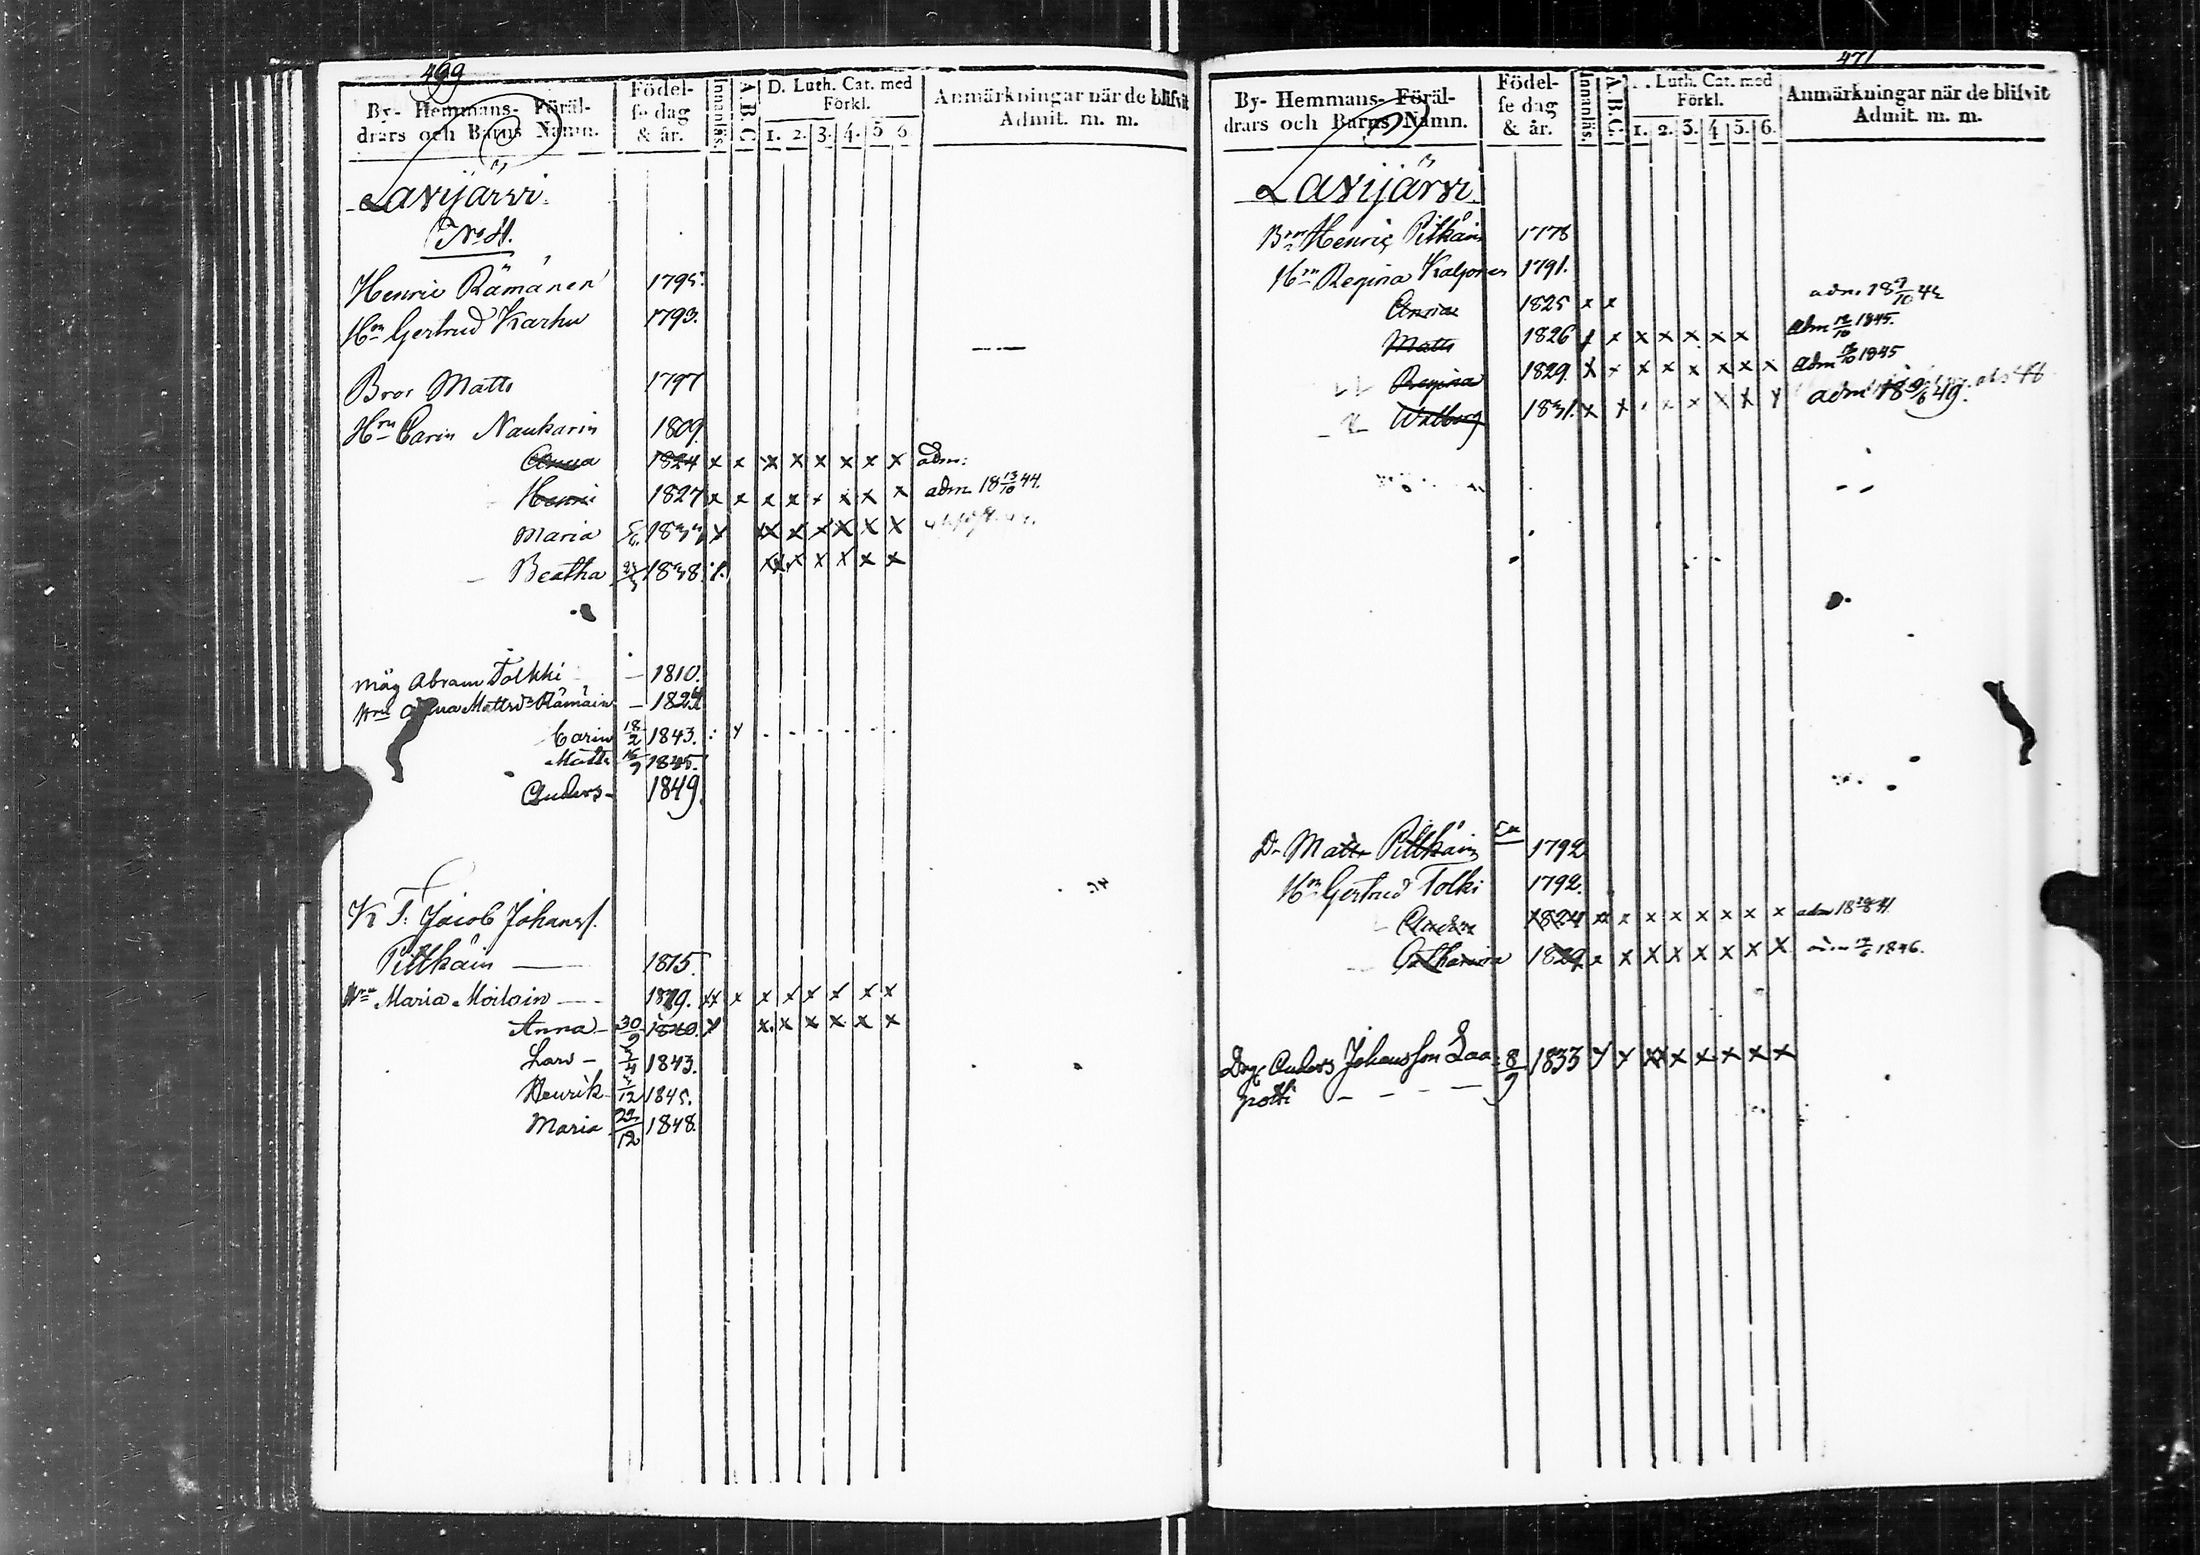 499
By- Hemmans- Föräl-
drars och Barns Namn.
Födel-
se dag
& år.
Innanläs.
A.B.C.
D. Luth. Cat. med
Förkl.
1. 2. 3. 4. 5 6
Anmärkningar när de blifvit
Admit. m. m.
Lavijärvi
No 4.
Henric Rämänen 1795.
Hru Gertrud Karhu 1793.
Bror Matts 1797
Hru Carin Naukarin 1809
Anna 1824 x x x x x x x x adm:
Henric 1827 x x x x x x x x adm. 18 13/10 44.
Maria x x x x x x x
Beatha 1838 x x x x x x
Måg Abram Tolkki — 1810.
Hru Anna Mattsdr Rämäin — 1824
Carin 18/2 1843.
Matts 1845.
Anders 1849.
K T. Jacob Johanss.
Pitkäin — 1815.
Hru Maria Moiloin — 1819. x x x x x x x x
Anna 30/9 1840. x x x x x x x
Lars 1843.
Henrik 1845.
Maria 22/12 1848.
471
By- Hemmans- Föräl-
drars och Barns Namn.
Födel-
se dag
& år.
Innanläs.
A.B.C.
Luth. Cat. med
Förkl.
1. 2. 3. 4 5. 6.
Anmärkningar när de blifvit
Admit. m. m.
Lavijärvi
Henric Pitkäin 1778
Hn Regina Kaljonen 1791.
Anna 1825 x x
Matts 1826 x x x x x x x adm 12/10 1845.
Regina 1829. x x x x x x x x adm 12/10 1845
Walborg 1831. x x x x x x x x adm 49.
D. Matts Pitkäin 1792
Hn Gertrud Tolki 1792.
Anders 1824 x x x x x x x x adm
Catharina 1829 x x x x x x x x 1846.
Drg. Anders Johansson Laa- 8/9 1833 x x x x x x x x
potti — — — —